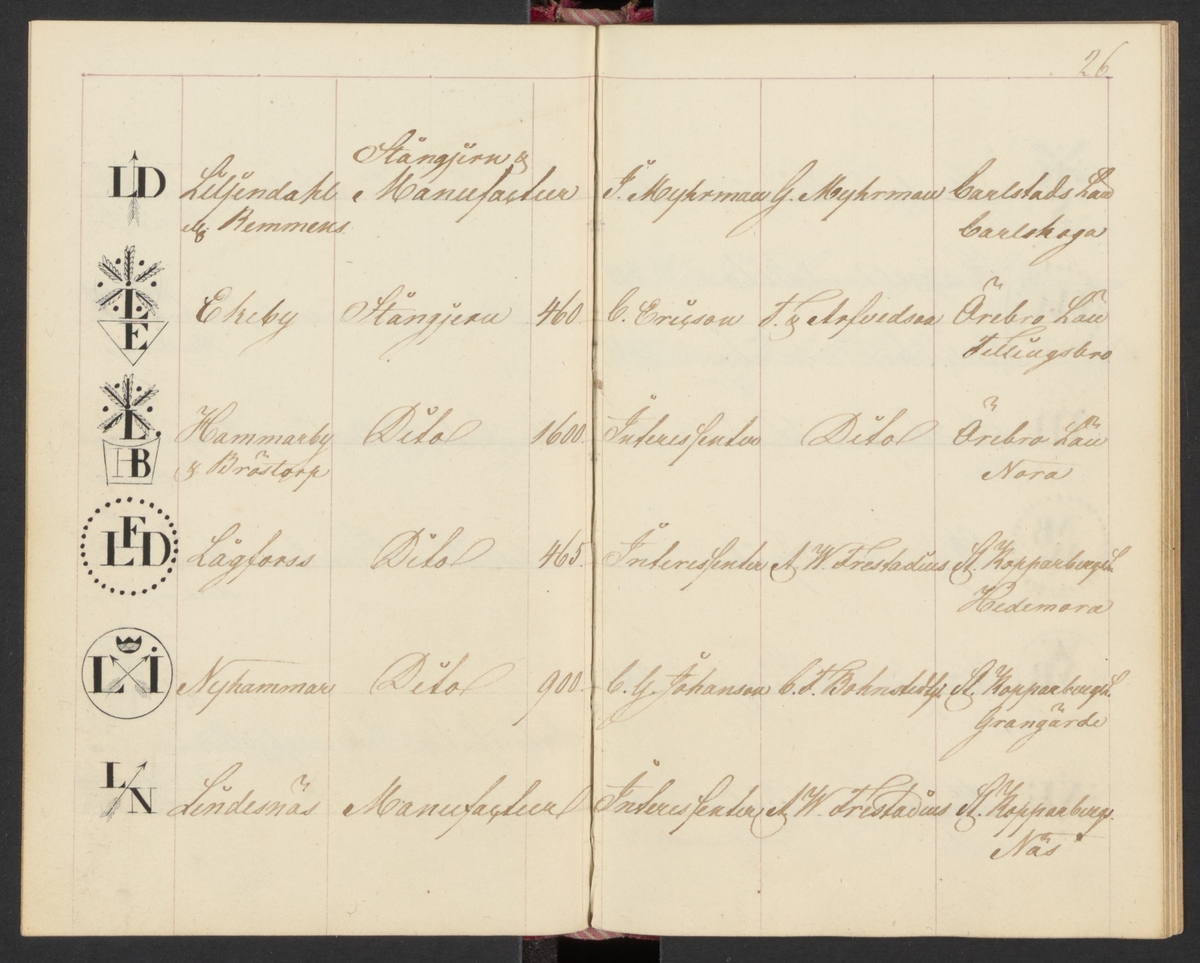 26
Stångjern &
LD Liljendahl Manufactur J. Myhrman G. Myhrman Carlstads Län
& Bemmens Carlskoga
L
E
Ekeby Stångjern 460 C. Ericson T. & Arfvedson Örebro Län
Fellingsbro
L
HB
Hammarby Dito 1600 Interessenter Dito Örebro Län
& Bröstorp Nora
F
LD Lågforss Dito 465 Interessenter A. W. Frestadius St. Kopparbergs L.
Hedemora
LI Nyhammar Dito 900 C. G. Johanson C. F. Bohnstedt St. Kopparbergs L.
Grangärde
L
N
Lindesnäs Manufactur Interessenter A. W. Frestadius St. Kopparbergs
Näs